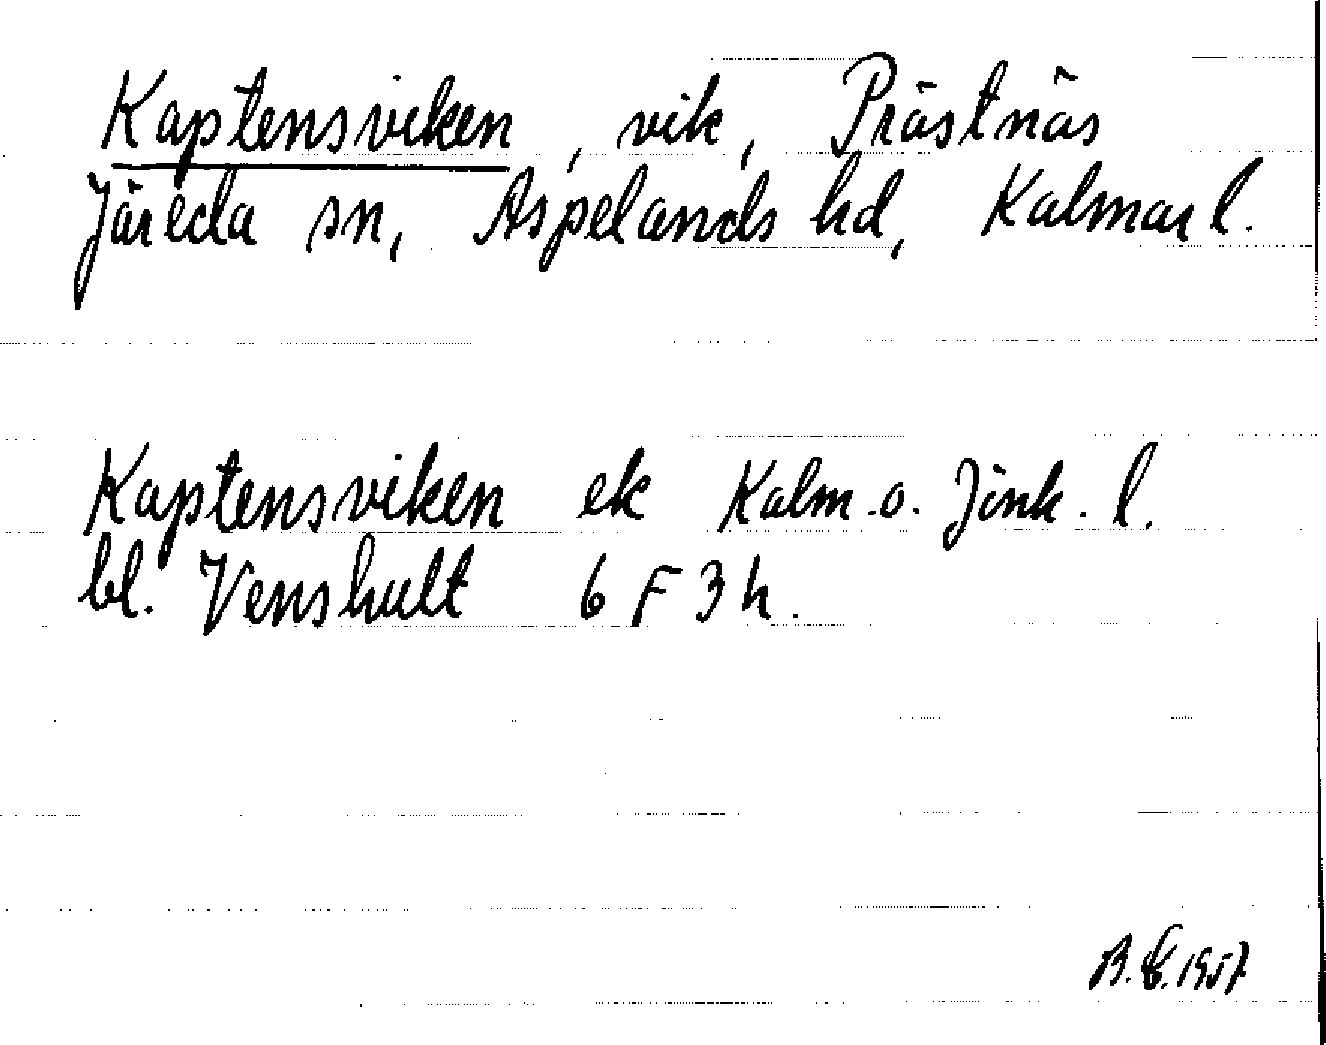 Kaptensviken, vik, Prästnäs
Järeda sn, Aspelands hd, Kalmar l.
Kaptensviken ek Kalm. o. Jönk. l.
bl. Venshult 6 F 3 h.
B. E. 1957